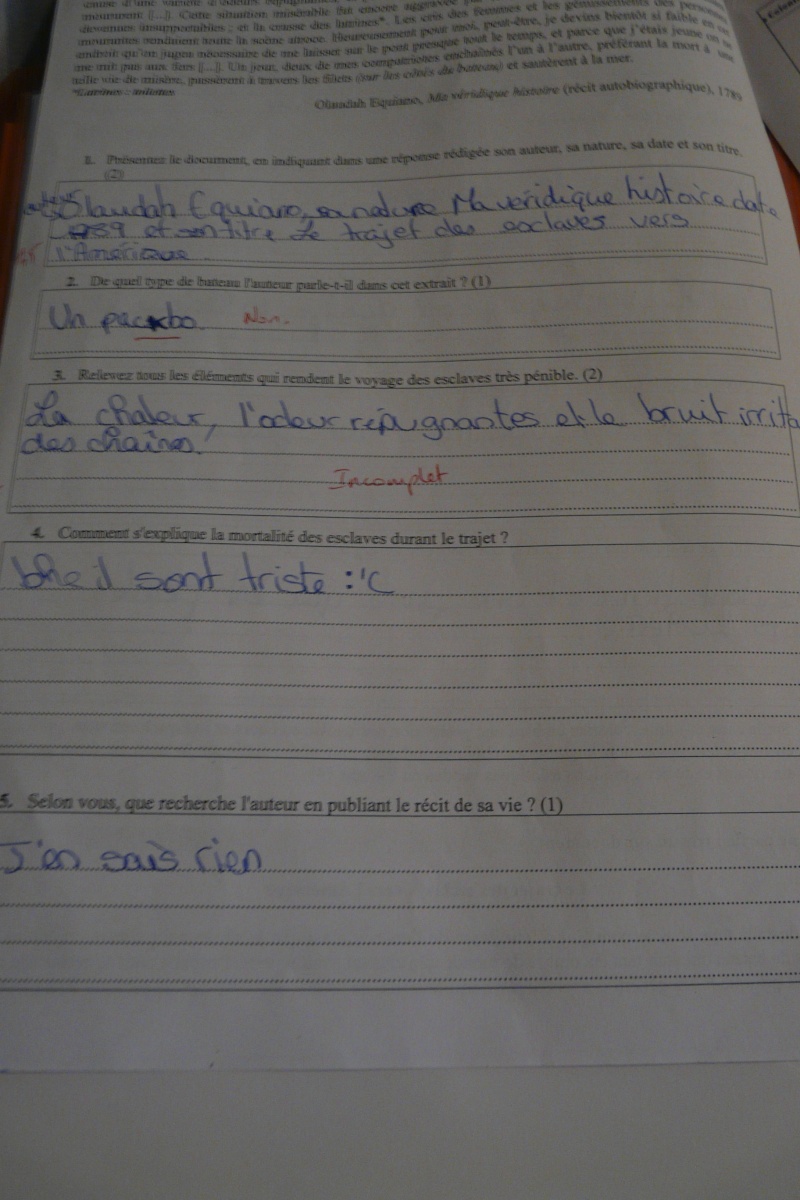 (...). Cette situation misérable fut encore aggravée
insupportables ; et la crasse des latrines*. Les cris des femmes et les gémissements des personnes
mourantes rendirent toute la scène atroce. Heureusement pour moi, peut-être, je devins bientôt si faible
qu'on jugea nécessaire de me laisser sur le pont presque tout le temps, et parce que j'étais jeune
me mit pas aux fers [...]. Un jour, deux de mes compatriotes enchaînés l'un à l'autre, préférant la mort à une
telle vie de misère, passèrent à travers les filets (sur les côtés du bateau) et sautèrent à la mer.
*Latrines : toilettes
Olaudah Equiano, Ma véridique histoire (récit autobiographique), 1789
1. Présentez le document, en indiquant dans une réponse rédigée son auteur, sa nature, sa date et son titre.
(2)
Olaudah Equiano, sa nature Ma veridique histoire date
et son titre Le trajet des esclaves vers
l'Amérique
2. De quel type de bateau l'auteur parle-t-il dans cet extrait ? (1)
Un Non.
3. Relevez tous les éléments qui rendent le voyage des esclaves très pénible. (2)
La chaleur, l'odeur répugnantes et le bruit irrita
des chaines!
Incomplet
4. Comment s'explique la mortalité des esclaves durant le trajet ?
bhe il sont triste :'C
5. Selon vous, que recherche l'auteur en publiant le récit de sa vie ? (1)
J'en sais rien